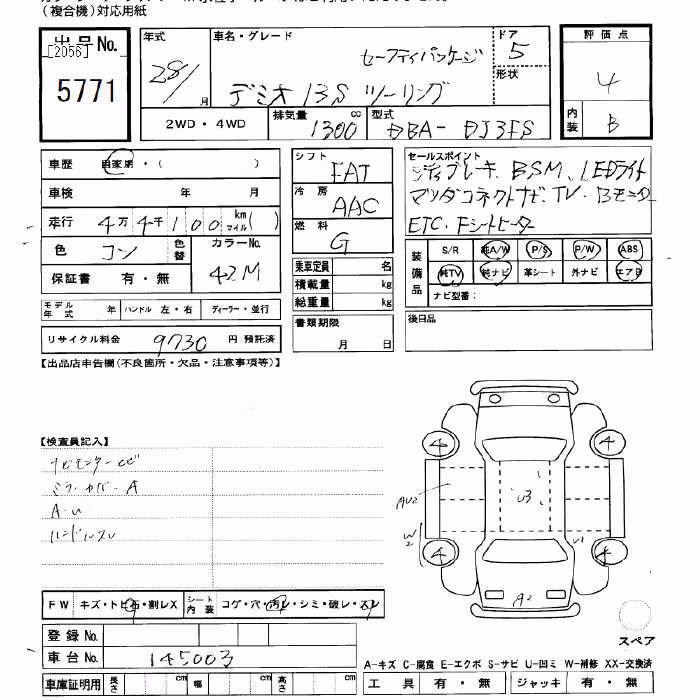 (複合機)対応用紙
出品No.
[2056]
5771
年式 28/ 月
車名・グレード
セーフティパッケージ
デミオ 13S ツーリング
ドア 5
形状
評価点
4
内装 B
2WD・4WD
排気量 1300 cc
型式 DBA- DJ3FS
車歴 自家用・( )
車検 年 月
走行 4万 4千 100 km マイル ( )
色 コン 色替
カラーNo. 42M
保証書 有・無
モデル年式 年 ハンドル 左・右 ディーラー・並行
リサイクル料金 9730 円 預託済
シフト FAT
冷房 AAC
燃料 G
乗車定員 名
積載量 kg
総重量 kg
書類期限
月 日
セールスポイント
ブレーキ、BSM、LEDライト
マツダコネクトナビ、TV・Bモニター
ETC・Fシートヒーター
装備品
S/R 純A/W P/S P/W ABS
純TV 純ナビ 革シート 外ナビ エアB
ナビ型番:
後日品
【出品店申告欄(不良箇所・欠品・注意事項等)】
【検査員記入】
ナビモニターサビ
ミラーカバーA
A・U
ハンドルスレ
4
4
4
4
AU2
W2
U3
U1
A2
スペア
FW キズ・トビ石・割レX
シート内装 コゲ・穴・汚レ・シミ・破レ・スレ
登録No.
車台No. 145003
車庫証明用 長さ cm 幅 cm 高さ cm
A-キズ C-腐食 E-エクボ S-サビ U-凹ミ W-補修 XX-交換済
工具 有・無 ジャッキ 有・無